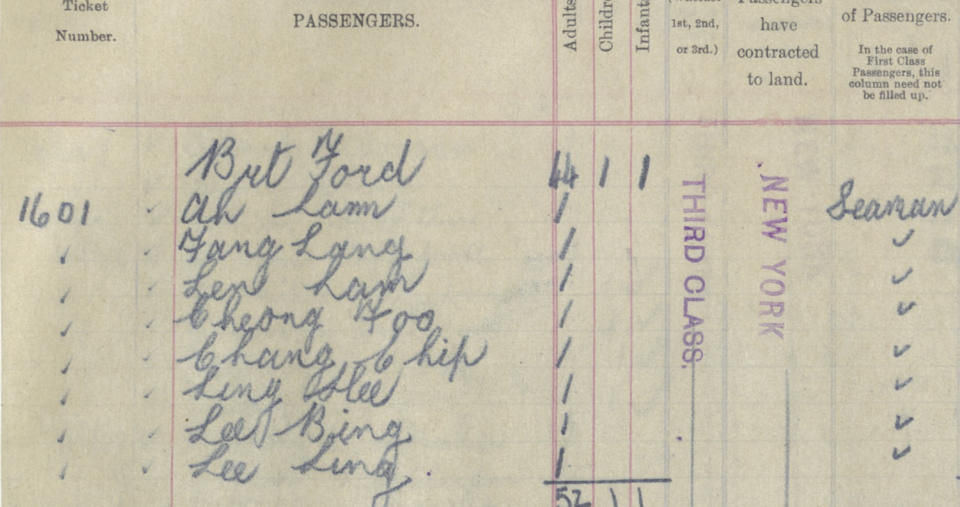 Ticket
Number.
PASSENGERS.
Adults
Childre
Infant
1st, 2nd,
or 3rd.)
Passengers
have
contracted
to land.
of Passengers.
In the case of
First Class
Passengers, this
column need not
be filled up.
Brt Ford 44 1 1
1601 ✓ Ah Lam / Seaman
✓ ✓ Fang Lang / ✓
✓ ✓ Len Lam / ✓
✓ ✓ Cheong Foo / ✓
✓ ✓ Chang Chip / ✓
✓ ✓ Ling Hee / ✓
✓ ✓ Lee Bing / ✓
✓ ✓ Lee Ling. / ✓
52 1 1
THIRD CLASS.
NEW YORK